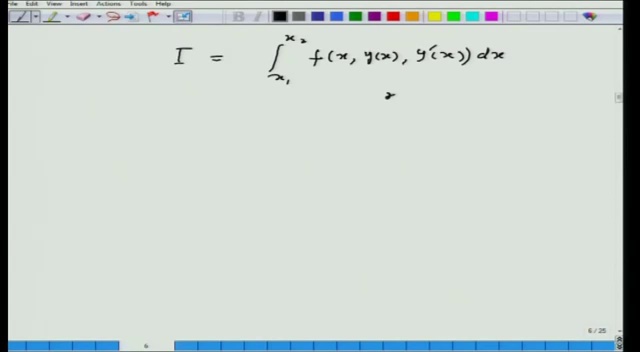 File Edit View Insert Actions Tools Help
B I
I = ∫_{x₁}^{x₂} f(x, y(x), y'(x)) dx
6 / 25
6